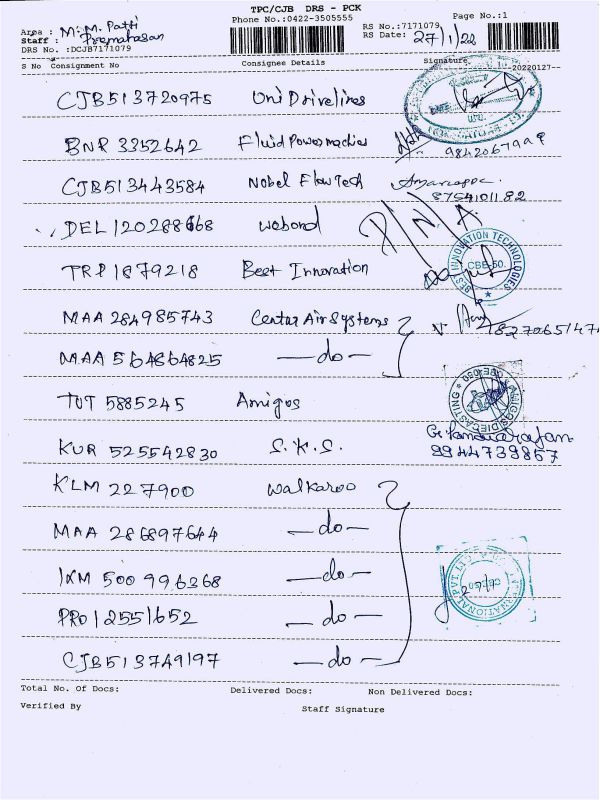 TPC/CJB DRS - PCK
Area : M.M. Patti Phone No.:0422-3505555 RS No.:7171079 Page No.:1
Staff : RS Date: 27/1/22
DRS No. :DCJB7171079
S No Consignment No Consignee Details Signature 20220127
CJB513720975 Uni Drivelines
BNR 3352642 Fluid Powermachies
9842067999
CJB513443584 Nobel FlowTech
8754101182
DEL 120288668 webond P/N/A.
TRP 1879218 Best Innovation
BES INNOVATION TECHNOLOGIES
CBE-50.
MAA 284985743 Centar Air Systems
MAA 564864825 — do —
TUT 5885245 Amigos
AMIGAS DIECASTING
KUR 525542830 S.K.S.
9944739857
KLM 227900 walkaroo
MAA 286897644 — do —
IKM 500 996368 — do —
PRO 12551652 — do —
CJB513749197 — do —
Total No. Of Docs: Delivered Docs: Non Delivered Docs:
Verified By Staff Signature